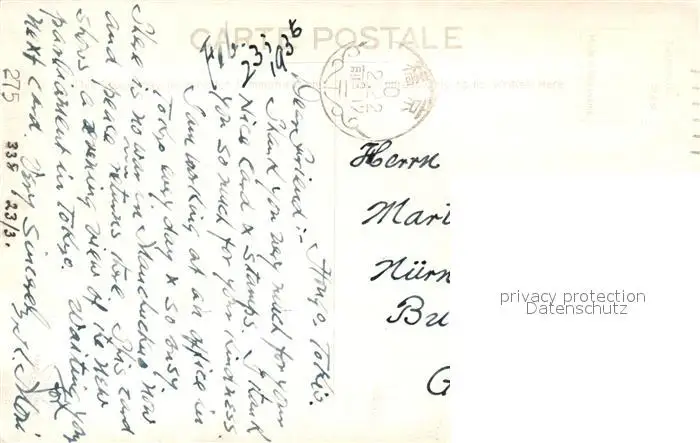 CARTE POSTALE
Hongo. Tokio.
Feb. 23, 1936
Dear friend:-
Thank you very much for your
Nice Card & Stamps. I thank
you so much for your kindness.
I am working at an office in
Tokyo every day & so busy.
There is no war in Manchukuo now
and peace returns there. This card
shows a evening view of the new
parliament in Tokyo. Waiting your
next card. Very sincerely
275 338 23/3.
Herrn
Mari
Nürn
Bu
G
privacy protection
Datenschutz